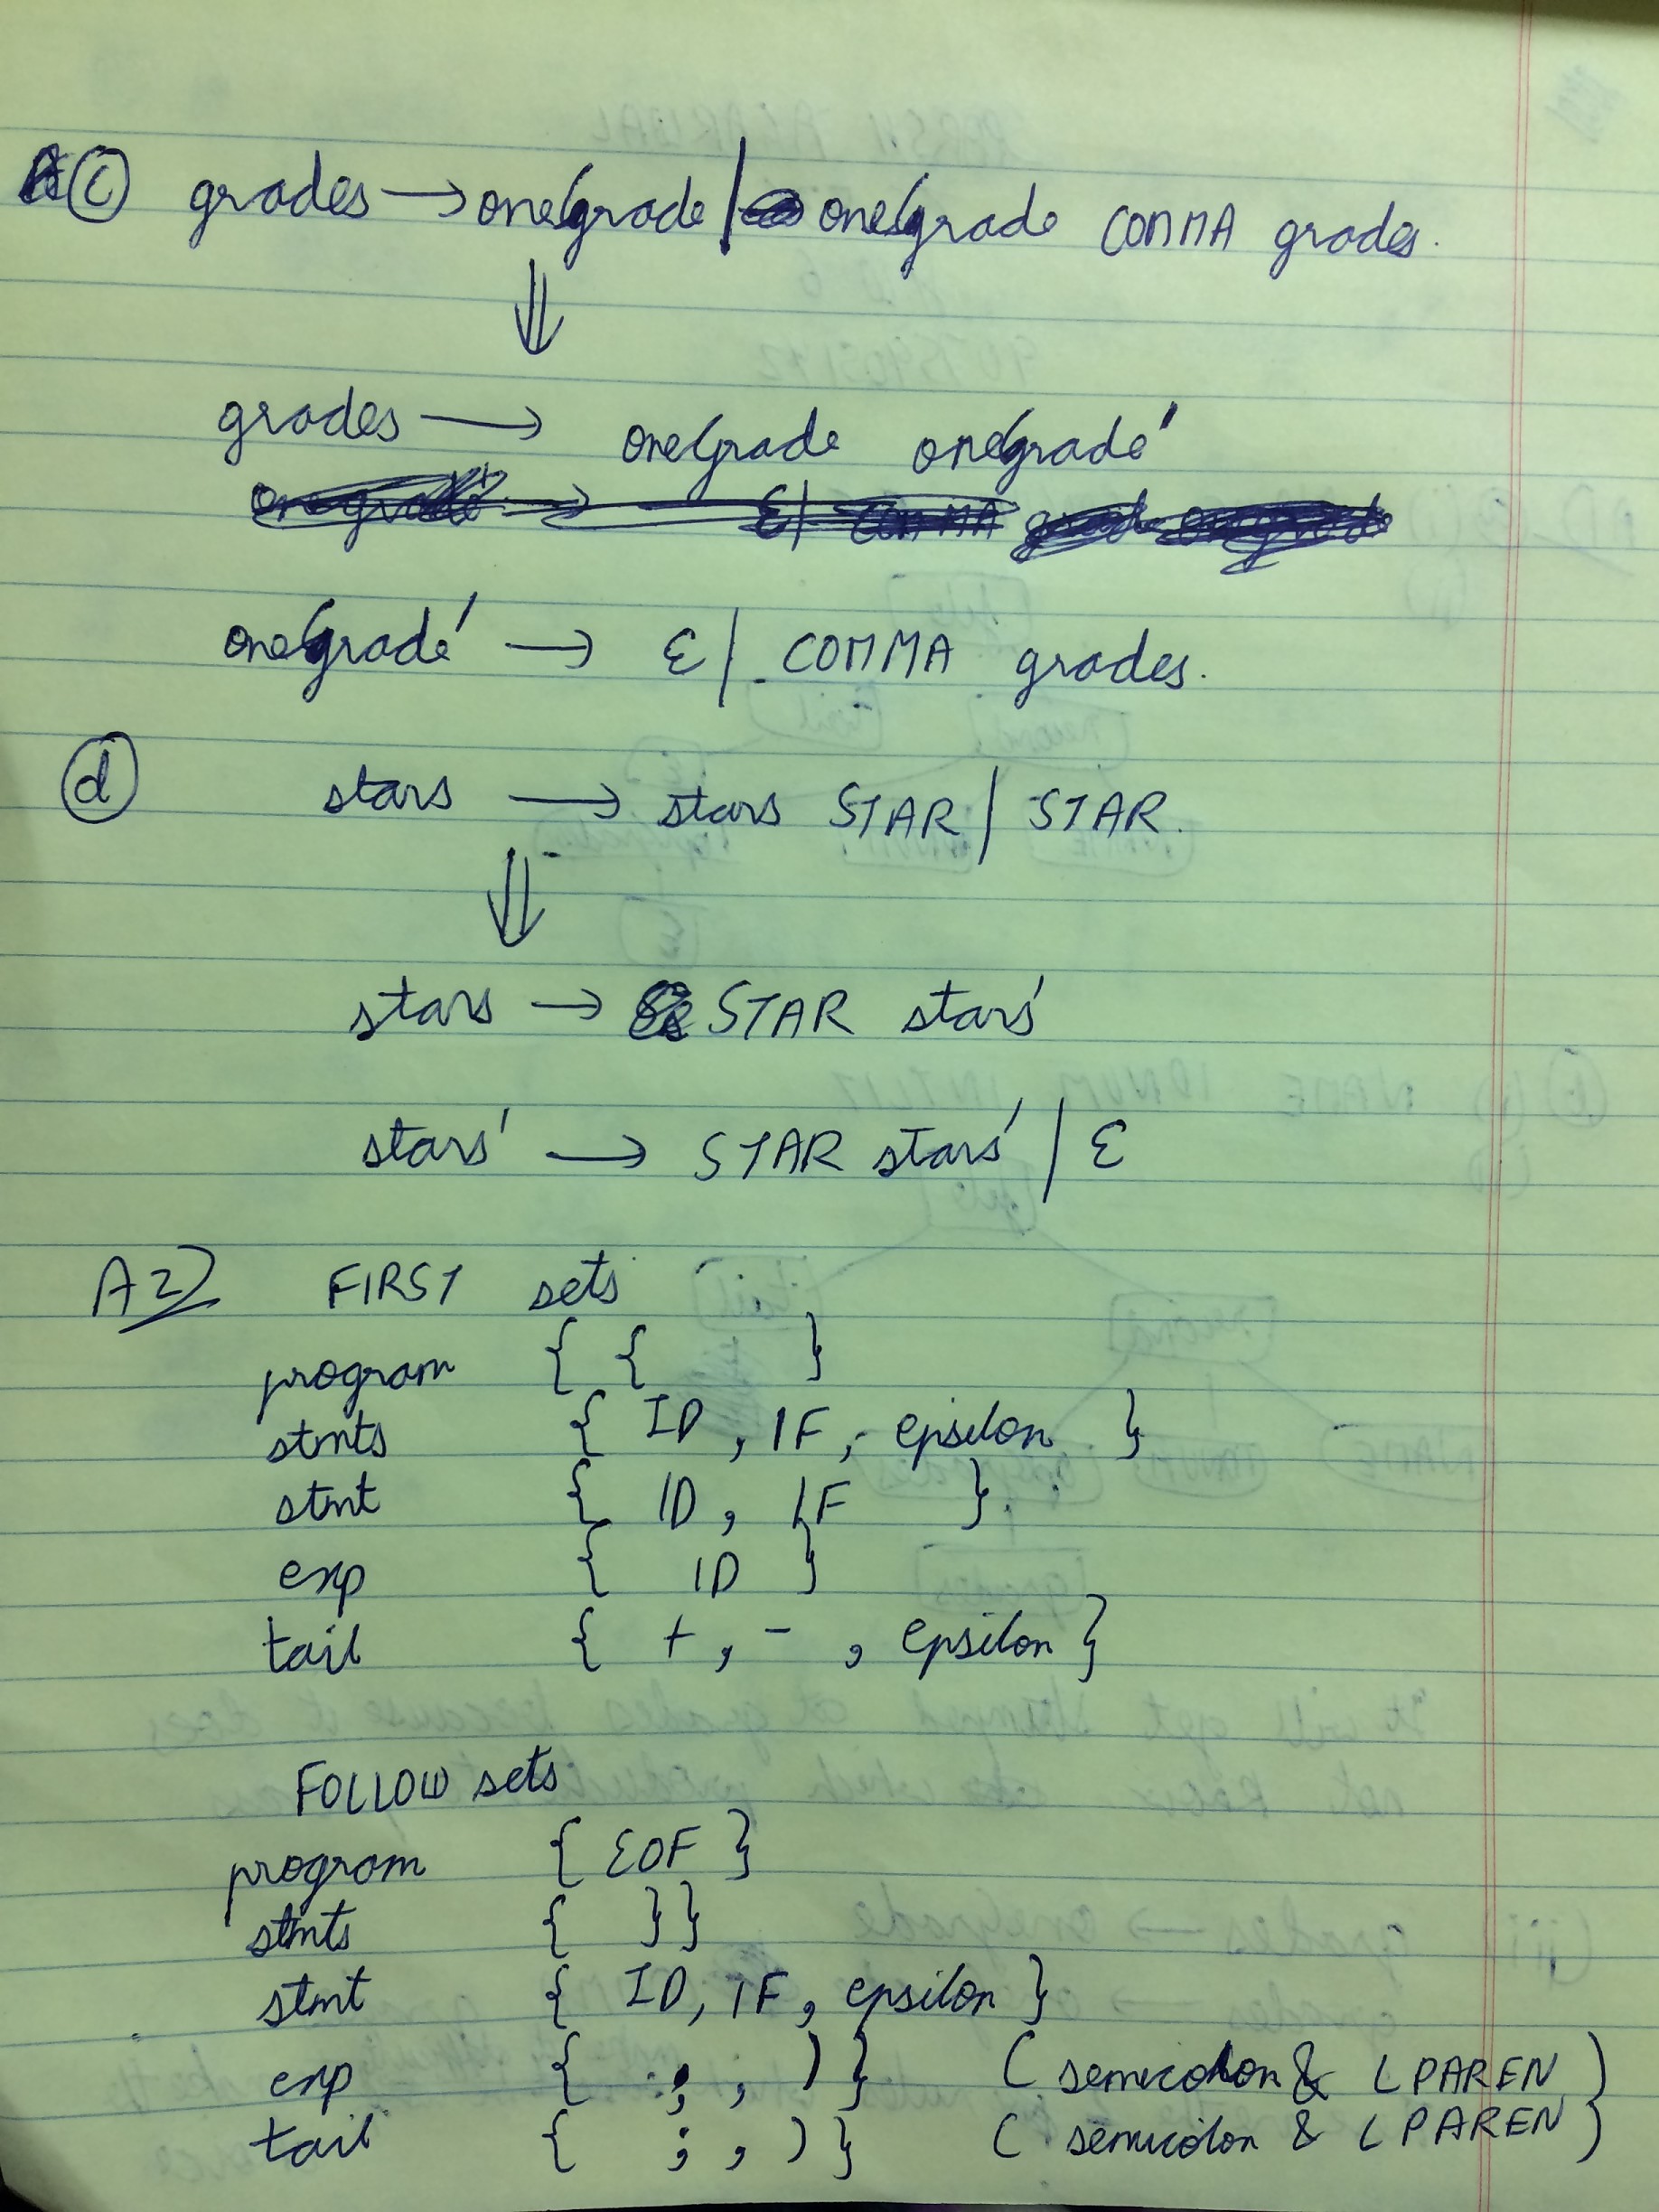 (c) grades → oneGrade | oneGrade COMMA grades.
⇓
grades → oneGrade oneGrade'
oneGrade' → ε | COMMA grades.
(d) stars → stars STAR | STAR.
⇓
stars → STAR stars'
stars' → STAR stars' | ε
A2) FIRST sets
program { { }
stmts { ID, IF, epsilon }
stmt { ID, IF }
exp { ID }
tail { +, -, epsilon }
FOLLOW sets
program { EOF }
stmts { } }
stmt { ID, IF, epsilon }
exp { ; , ) } ( semicolon & LPAREN )
tail { ; , ) } ( semicolon & LPAREN )